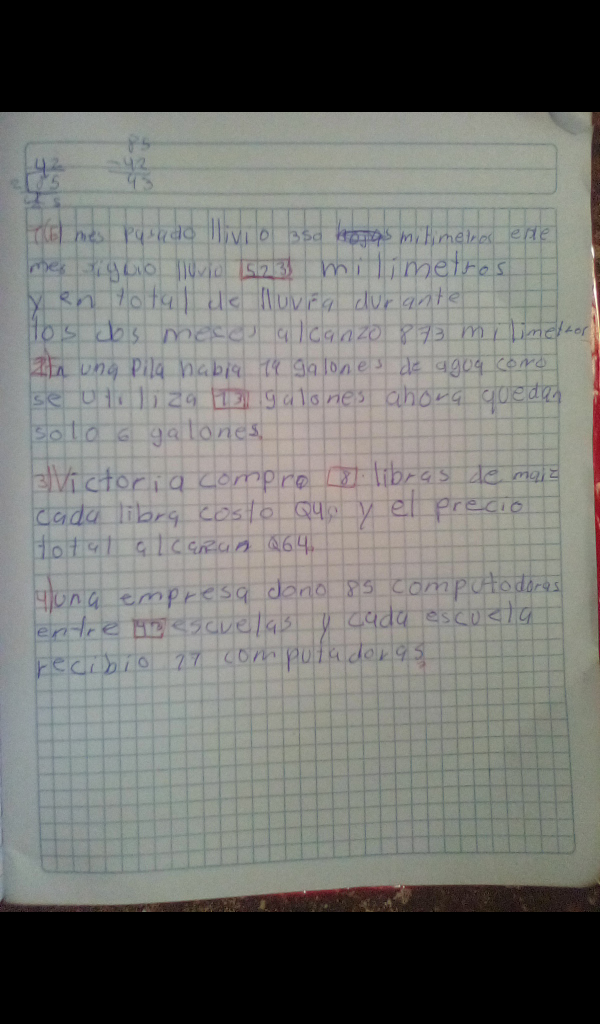 85
42 -42
2 85 43
1)El mes pasado llivio 350 mitimetros este
mes siguio lluvio 523 milimetros
y en total de lluvia durante
los dos meses alcanzo 873 milimetros
2)En una pila habia 19 galones de agua como
se utiliza 13 galones ahora quedan
solo 6 galones.
3)Victoria compro 8 libras de maiz
cada libra costo Q4, y el precio
total alcazan Q64.
4)una empresa dono 85 computadoras
entre escuelas y cada escuela
recibio 17 computadoras.